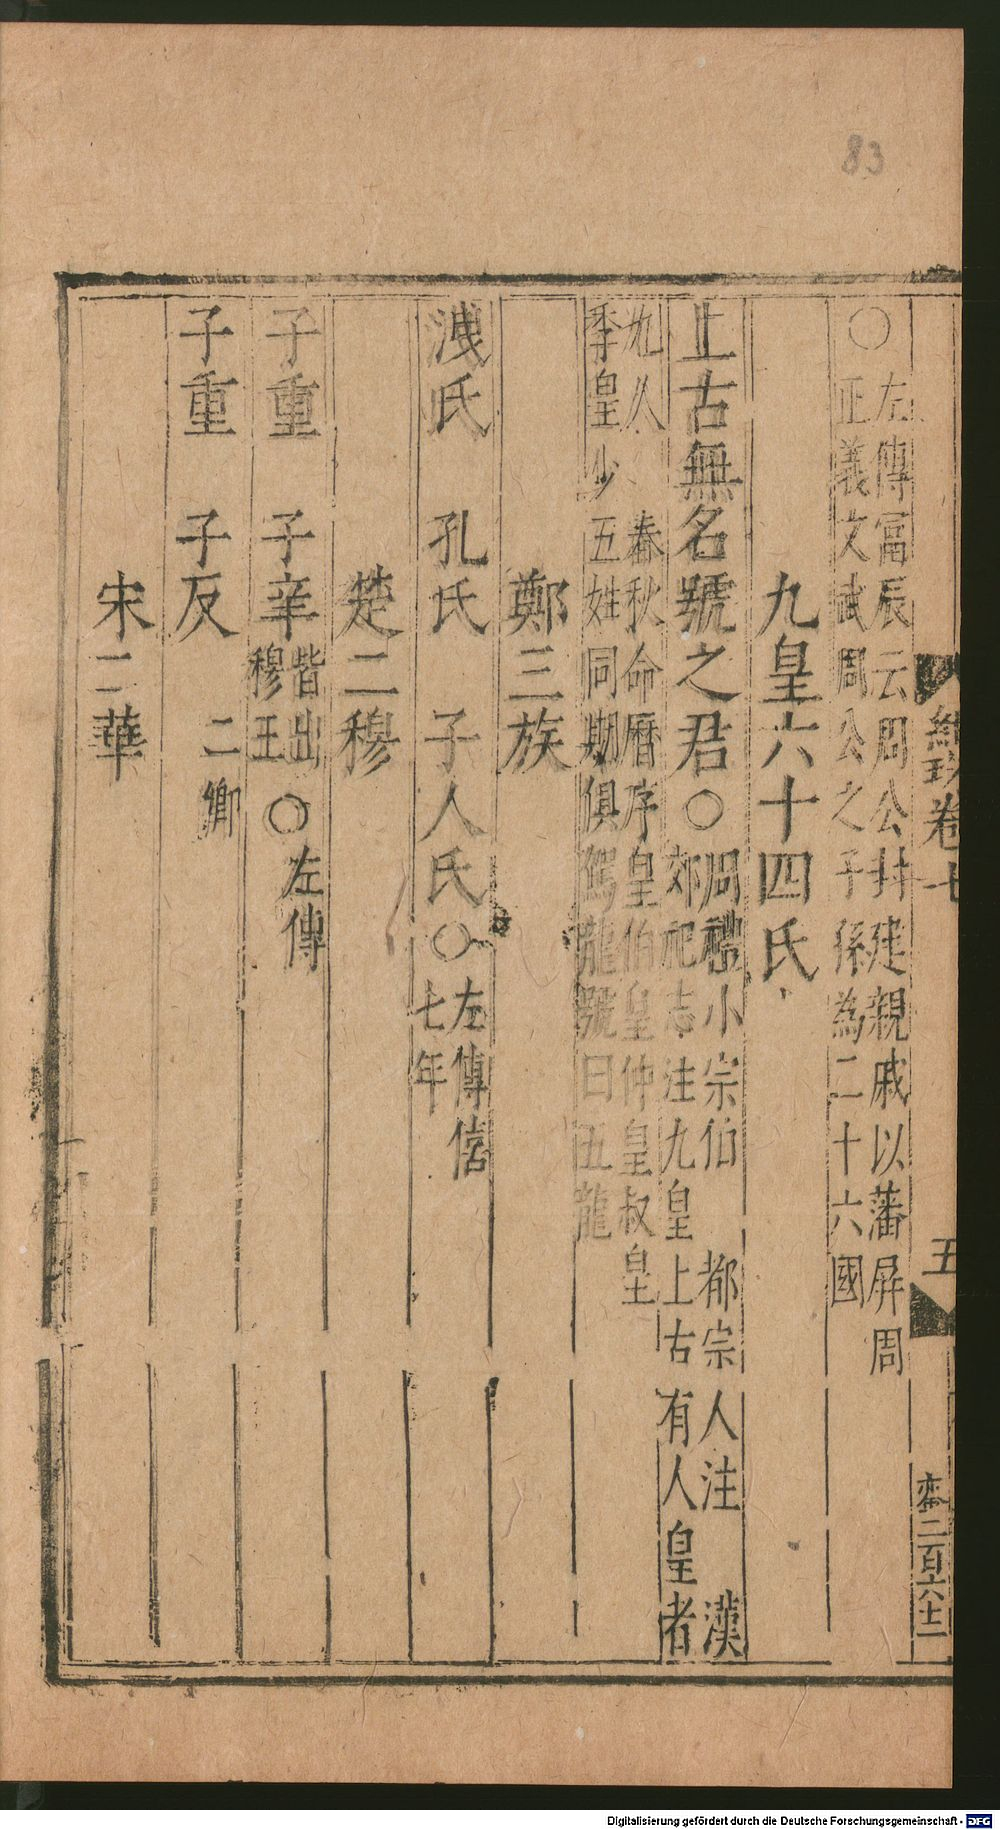 紺珠卷七
五
二百六十二
○左傳富辰云周公封建親戚以藩屏周
正義文武周公之子孫為二十六國
九皇六十四氏
上古無名號之君○周禮小宗伯 都宗人注 漢
郊祀志注九皇上古有人皇者
九人 春秋命曆序皇伯皇仲皇叔皇
季皇少五姓同期俱駕龍號曰五龍
鄭三族
洩氏 孔氏 子人氏○左傳僖
七年
楚二穆
子重 子辛皆出
穆王○左傳
子重 子反 二卿
宋二華
83
Digitalisierung gefördert durch die Deutsche Forschungsgemeinschaft - DFG